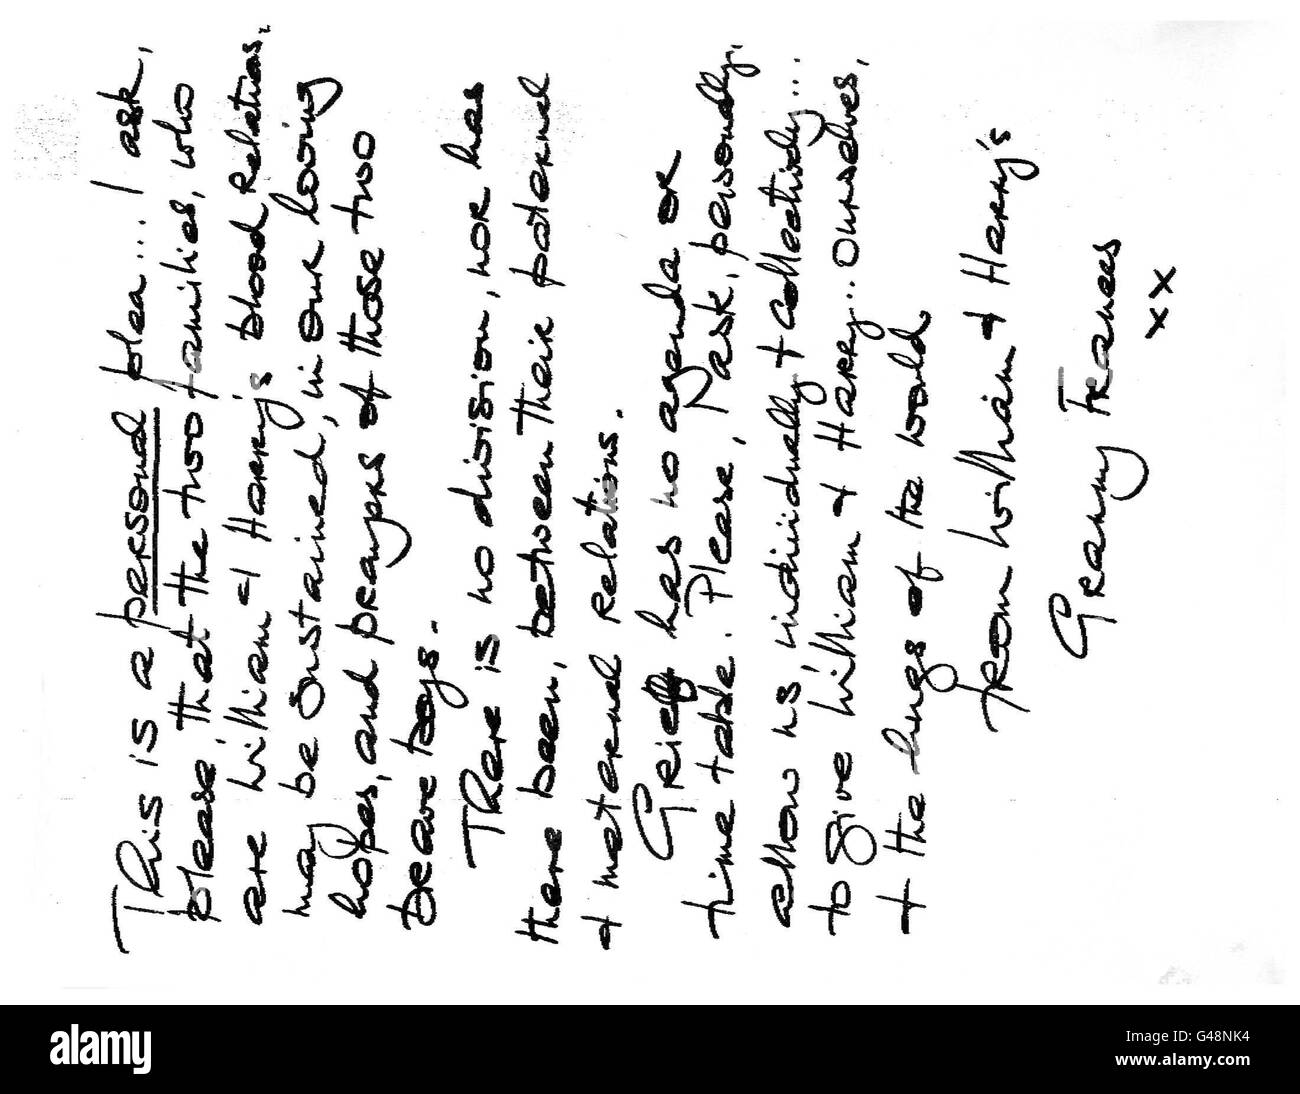 This is a personal plea... I ask,
please, that the two families, who
are William & Harry's blood relations.
may be sustained, in our loving
hopes, and prayers of those two
dear boys.
There is no division, nor has
there been, between their paternal
& maternal relations.
Grief has no agenda or
time table. Please, I ask, personally,
allow us, individually & collectively...
to give William & Harry... ourselves,
& the hugs of the world.
From William & Harry's
Granny Frances
xx
alamy
Image ID: G48NK4
www.alamy.com